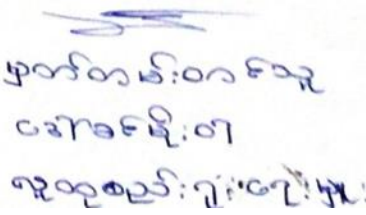 မှတ်တမ်းတင်သူ
ဒေါ်ခင်မိုးဝါ
လူထုစည်းရုံးရေးမှူး